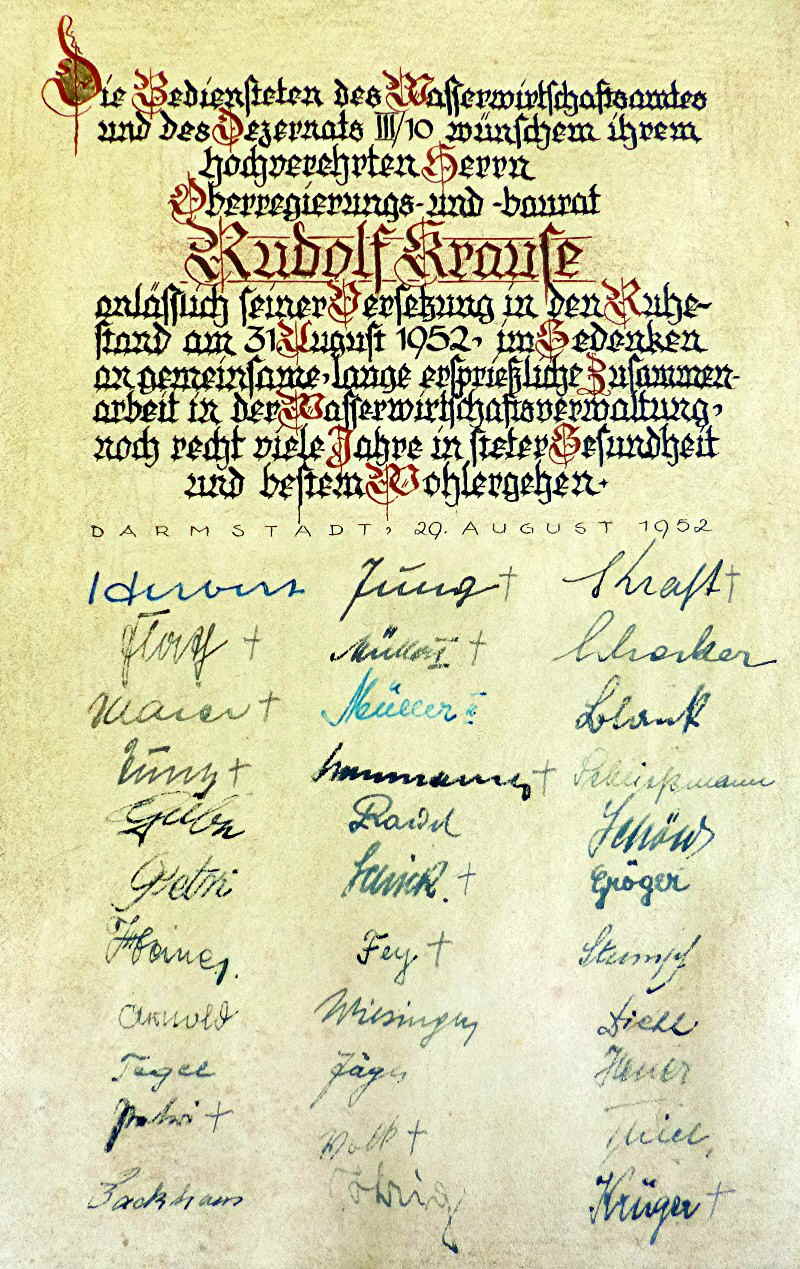 Die Bediensteten des Wasserwirtschaftsamtes
und des Dezernats III/10 wünschem ihrem
hochverehrten Herrn
Oberregierungs- und -baurat
Rudolf Krause
anlässlich seiner Versetzung in den Ruhe-
stand am 31 August 1952, im Gedenken
an gemeinsame, lange ersprießliche Zusammen-
arbeit in der Wasserwirtschaftsverwaltung,
noch recht viele Jahre in steter Gesundheit
und bestem Wohlergehen.
DARMSTADT, 29. AUGUST 1952
Herbert Jung † Kraft †
† Müller I †
Maier † Müller II Blank
Jung † † Schließmann
Raidl Schön
Petri Schick. † Gröger
Fey † Stumpf
Arnold Wiesinger Diehl
Tegel Jäger Heuer
Petri † Volk † Thiel
Backhaus Krüger †